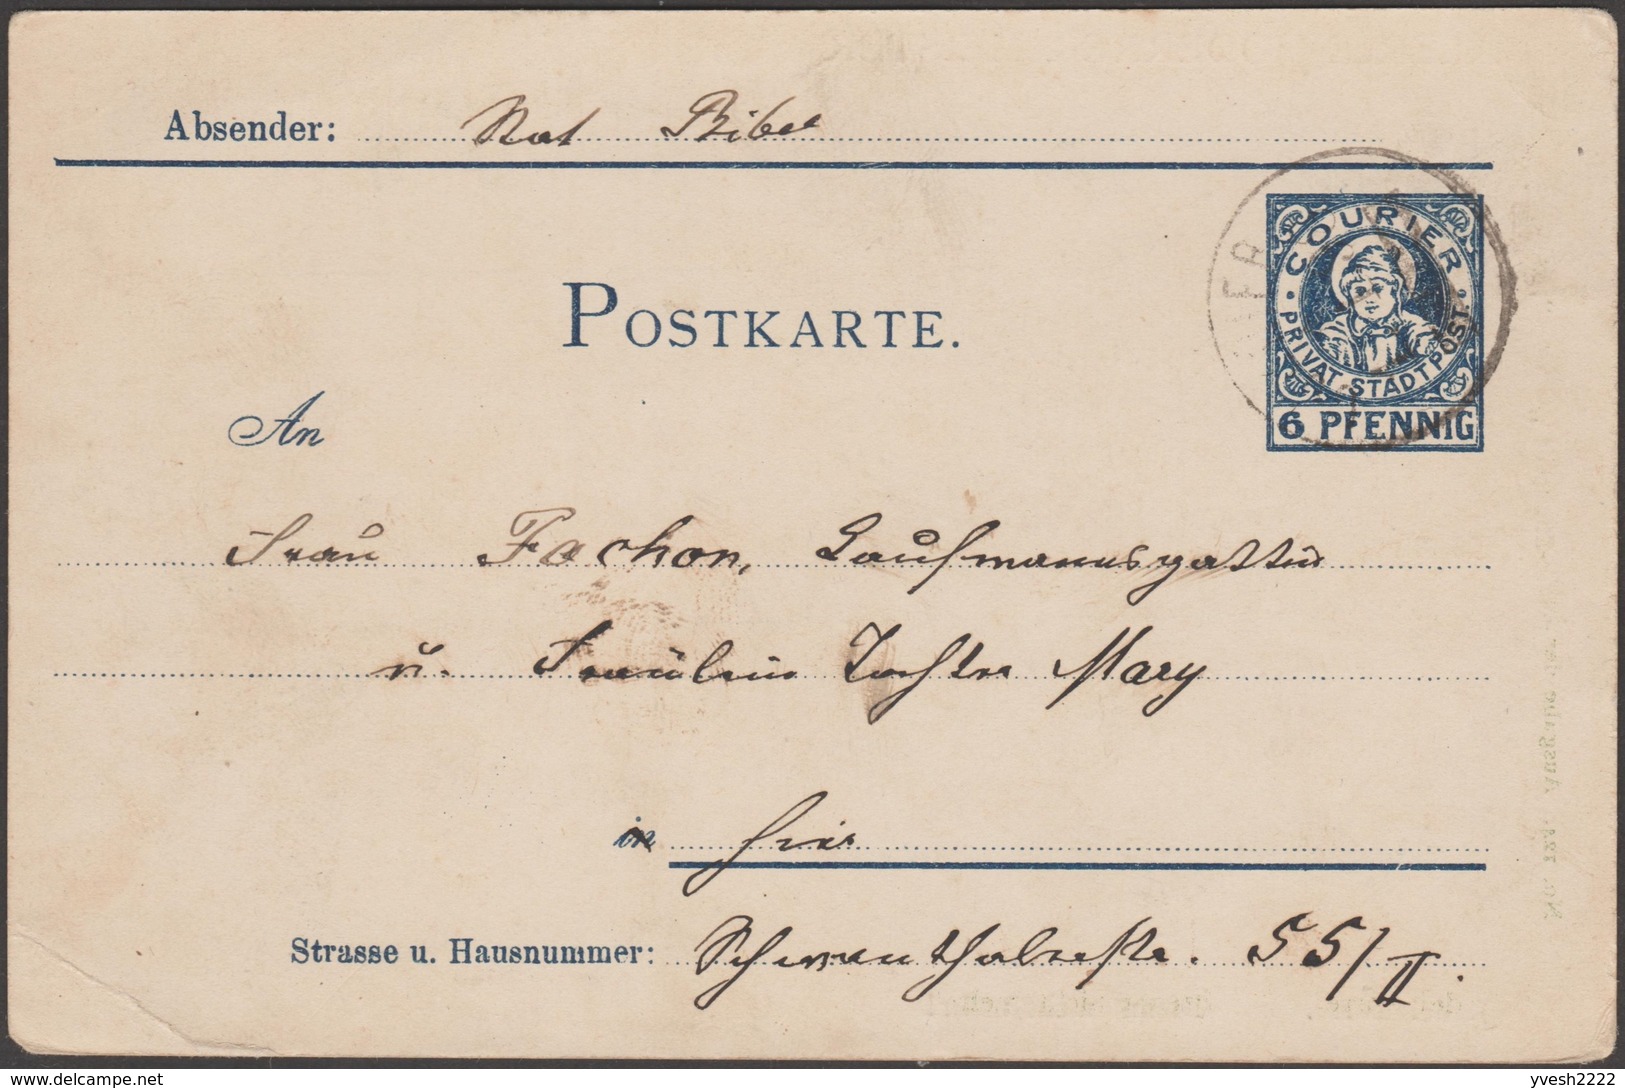 Absender: Nat Bibel
COURIER
PRIVAT-STADTPOST
6 PFENNIG
POSTKARTE.
An
Frau Fachon, Kaufmannsgattin
u. Fräulein Tochter Mary
in hier
Strasse u. Hausnummer: Schwanthalerstr. 55/II.
yvesh2222
delcampe.net